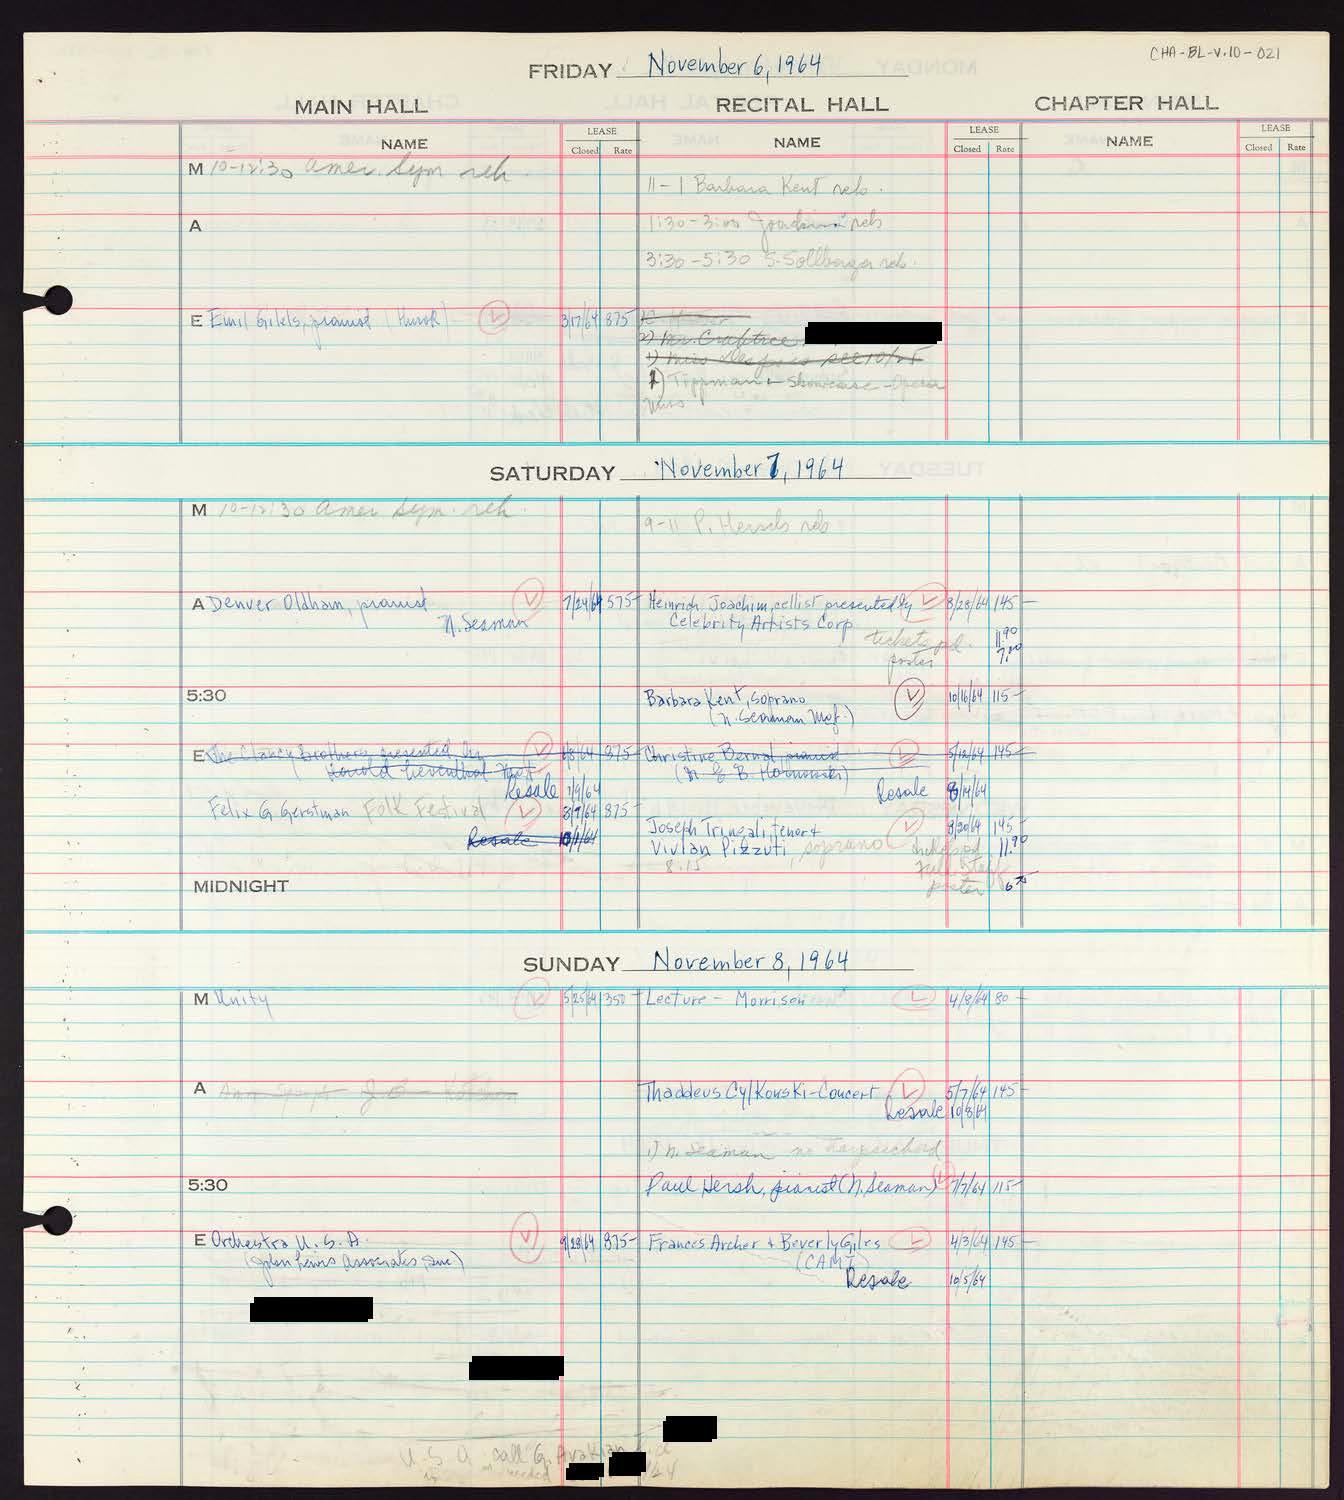 CHA-BL-V.10-021
FRIDAY November 6, 1964
MAIN HALL RECITAL HALL CHAPTER HALL
NAME LEASE Closed Rate NAME LEASE Closed Rate NAME LEASE Closed Rate
M 10-12:30 Amer. Sym reh.
11-1 Barbara Kent reh.
A
1:30-3:00 Joachim reh
3:30-5:30 S. Sollberger reh.
E Emil Gilels, pianist (Hurok) 3/17/64 875-
2) Mr. Crabtree
1) Miss see 10/25
1) Tippman - Showcase - Opera
SATURDAY November 7, 1964
M 10-12:30 Amer Sym. reh.
9-11 P. Hersch reh
A Denver Oldham, pianist 7/24/64 575-
N. Seaman
Heinrich Joachim, cellist presented by 8/28/64 145-
Celebrity Artists Corp
tickets pd. 11.90
poster 7.00
5:30
Barbara Kent, soprano 10/16/64 115-
(N. Seaman Mgt.)
E The Clancy Brothers, presented by 1/8/64 875-
Harold Leventhal Mgt
Resale 7/9/64
Felix G Gerstman Folk Festival 8/7/64 875-
Resale 10/1/64
Christine Bernal, pianist 5/12/64 145-
Resale 8/14/64
Joseph Tringali, tenor + 8/20/64 145-
Vivian Pizzuti, soprano tickets pd 11.90
8:15 Full Stage
poster 6.75
MIDNIGHT
SUNDAY November 8, 1964
M Unity 5/25/64 350-
Lecture - Morrison 4/8/64 80-
A
Thaddeus Cylkowski-Concert 5/7/64 145-
Resale 10/8/64
1) N. Seaman no harpsichord
5:30
Paul Hersh, pianist (N. Seaman) 7/7/64 115-
E Orchestra U.S.A. 9/28/64 875-
(John Lewis Associates, Inc)
Frances Archer + Beverly Giles 4/3/64 145-
(CAMI)
Resale 10/5/64
U.S.A. call G. Avakian